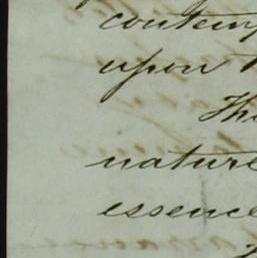 contemp
upon
The
nature
essence